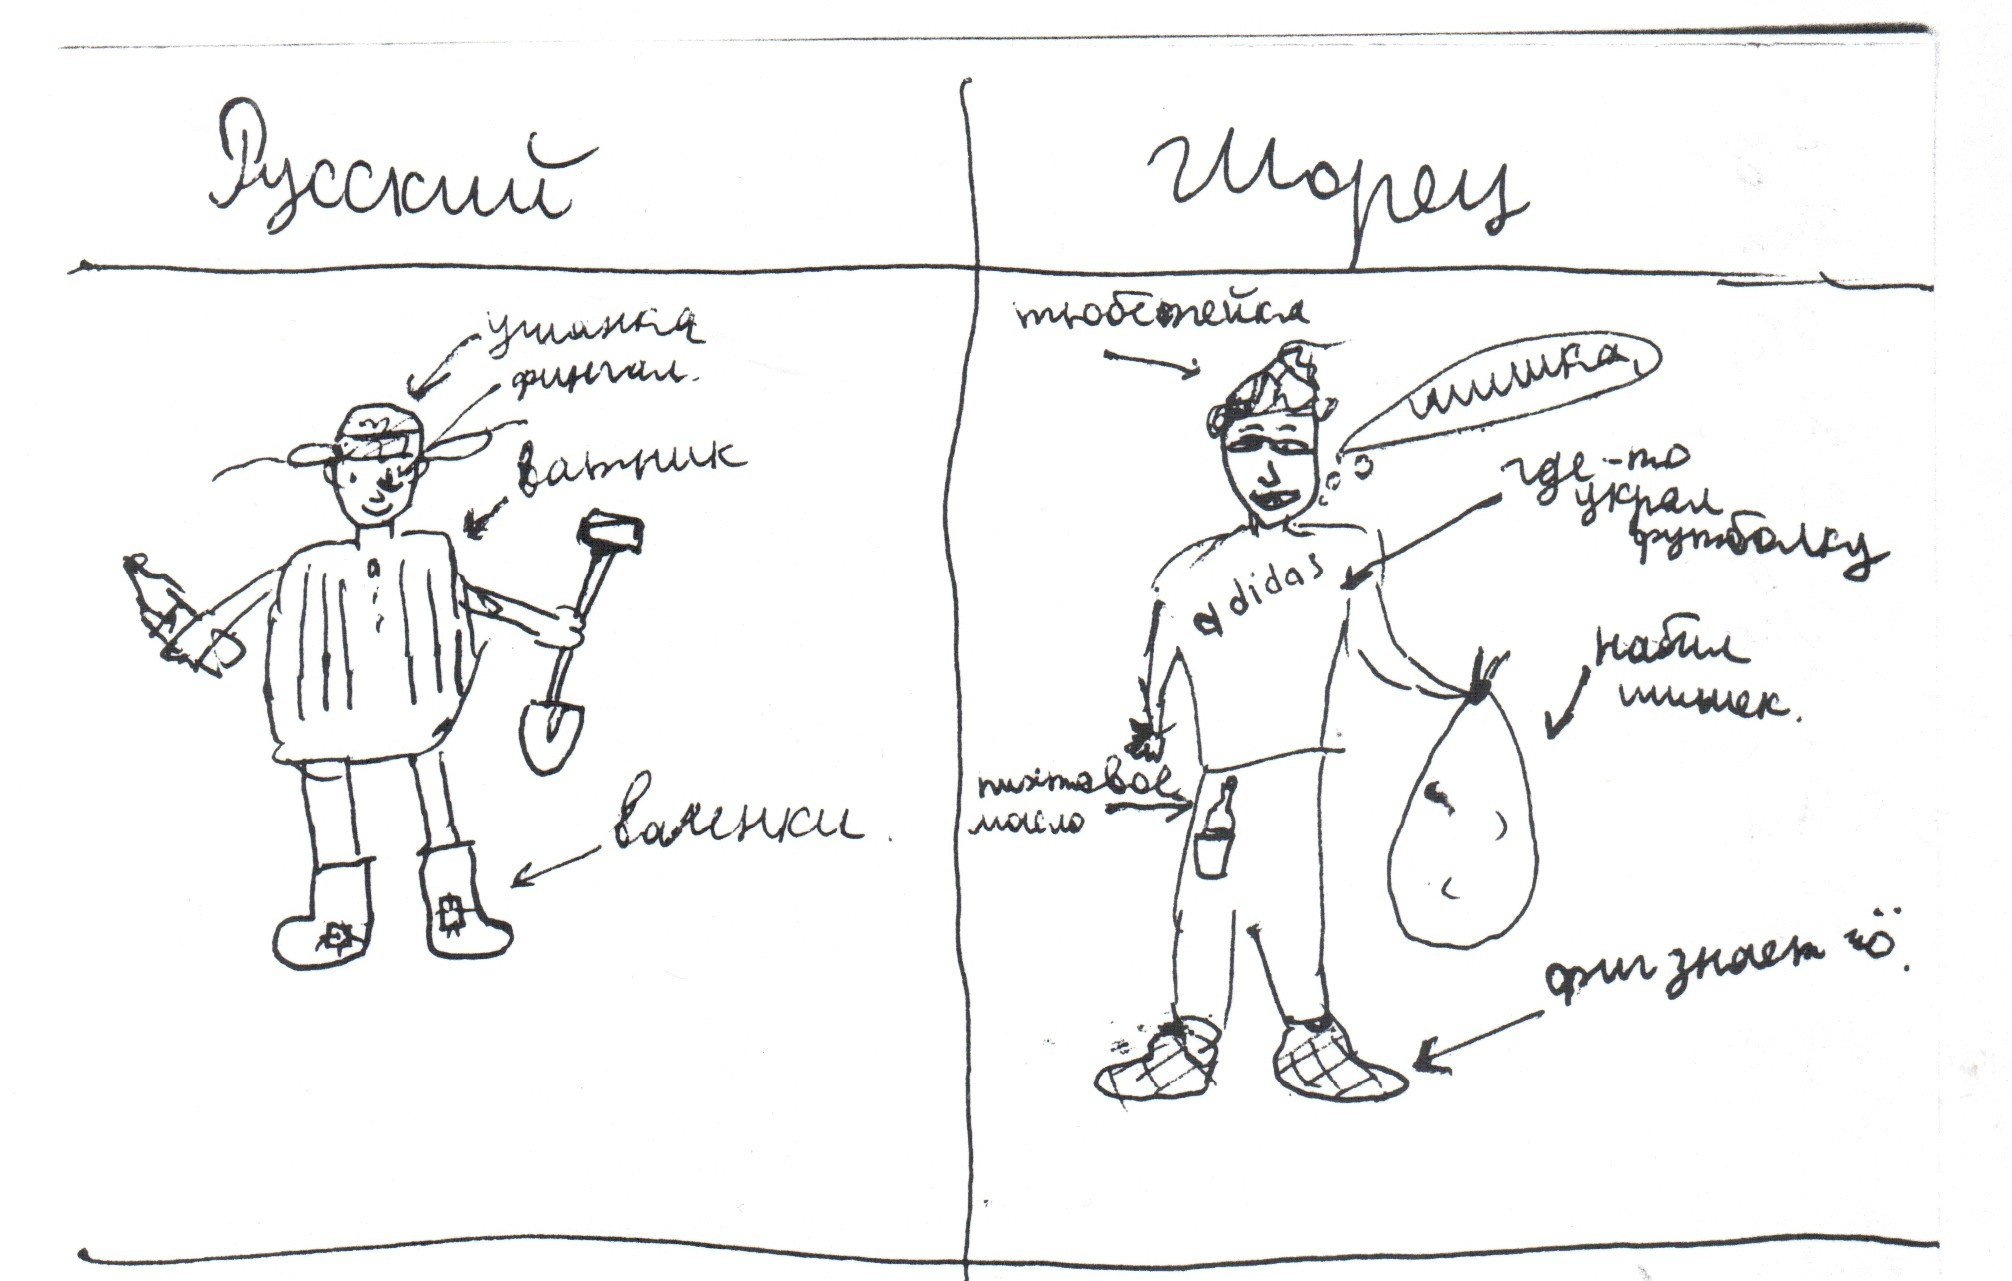 Русский
Шорец
ушанка
фингал.
ватник
валенки.
тюбетейка
шишка
где-то
украл
футболку
adidas
набил
шишек.
пихтовое
масло
фиг знает